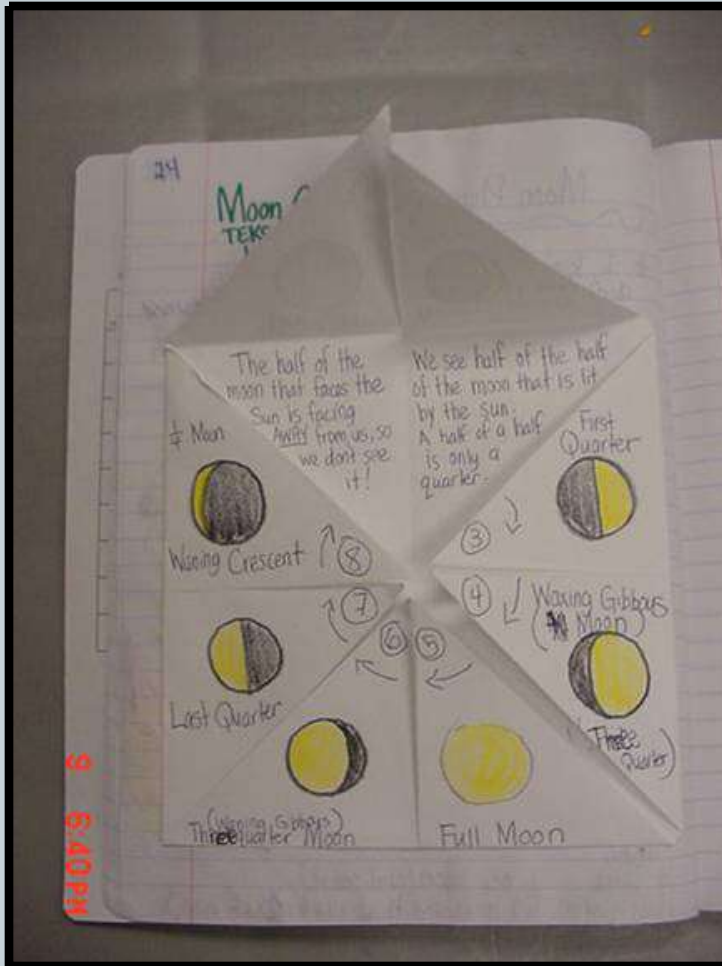 24
Moon
TEKS
The half of the
moon that faces the
Sun is facing
AWAY from us, so
we dont see
it!
We see half of the half
of the moon that is lit
by the sun.
A half of a half
is only a
quarter.
First
Quarter
3
4
Waxing Gibbous
Moon)
Three
Quarter)
5
Full Moon
6
(Waning Gibbous)
Threequarter Moon
7
Last Quarter
8
Moon
Waning Crescent
9 6:40PM